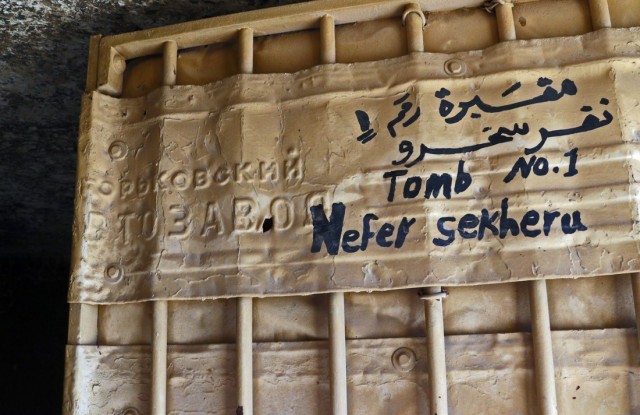 مقبرة رقم ١
نفر سخرو
Tomb No.1
Nefer sekheru
ГОРЬКОВСКИЙ
АВТОЗАВОД